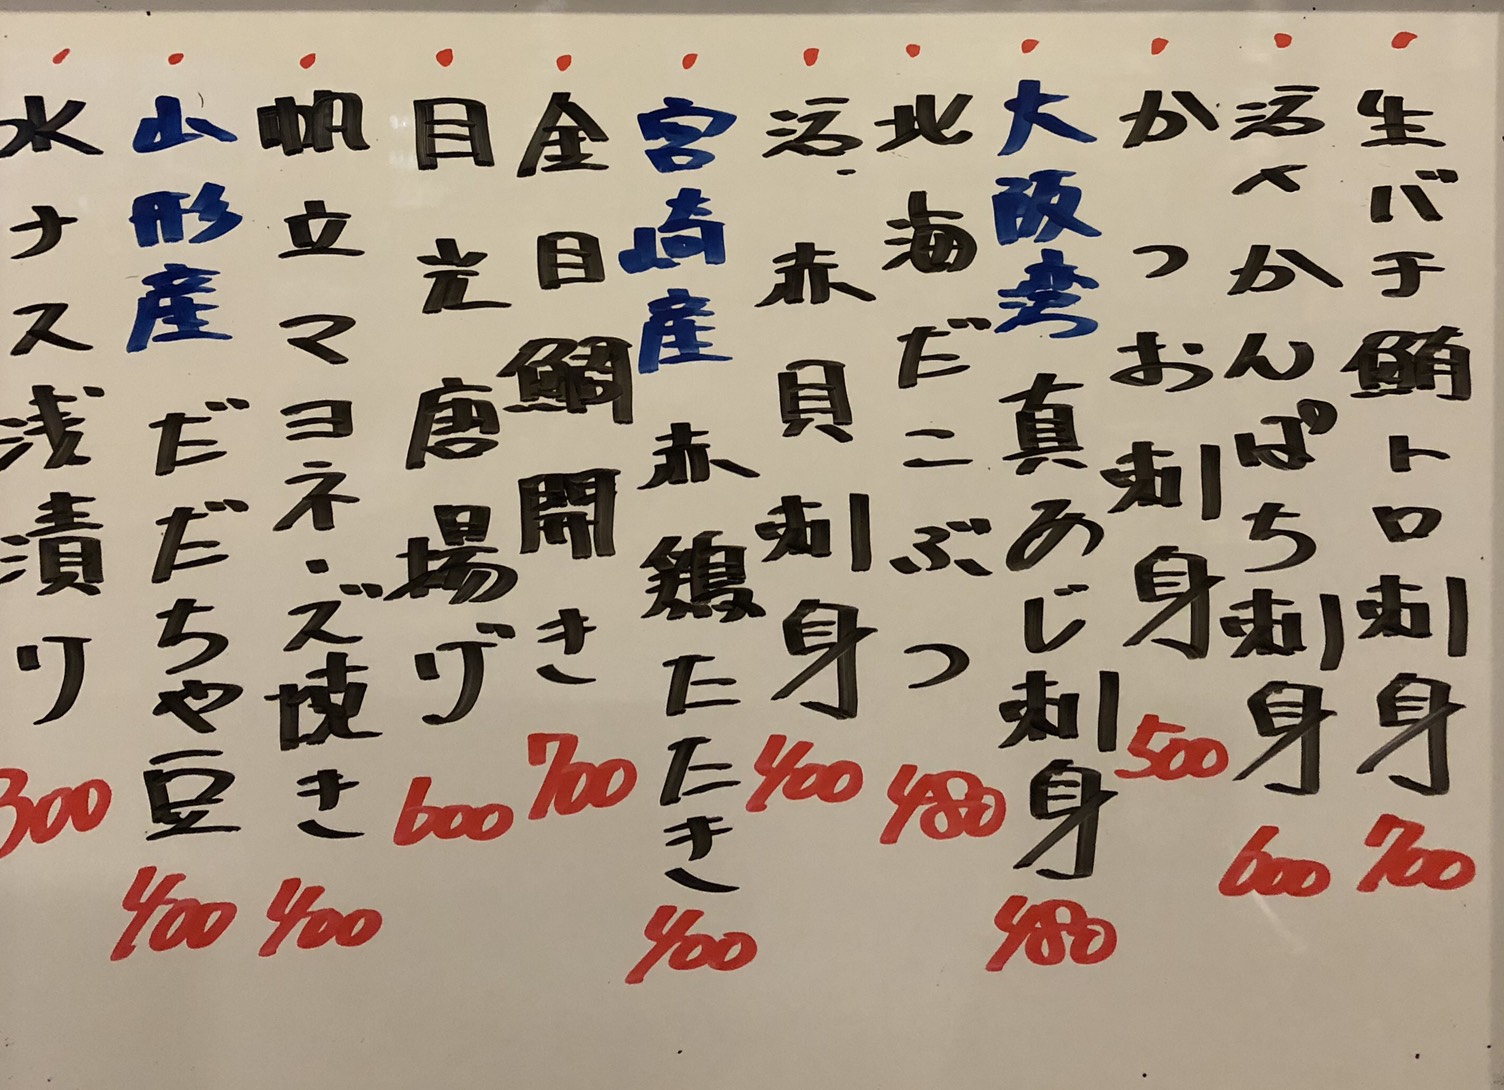 ・生バチ鮪トロ刺身 700
・活〆かんぱち刺身 600
・かつお刺身 500
・大阪湾真あじ刺身 480
・北海だこぶつ 480
・活赤貝刺身 400
・宮崎産赤鶏たたき 400
・金目鯛開き 700
・目光唐場げ 600
・帆立マヨネーズ焼き 400
・山形産だだちゃ豆 400
・水ナス浅漬り 300